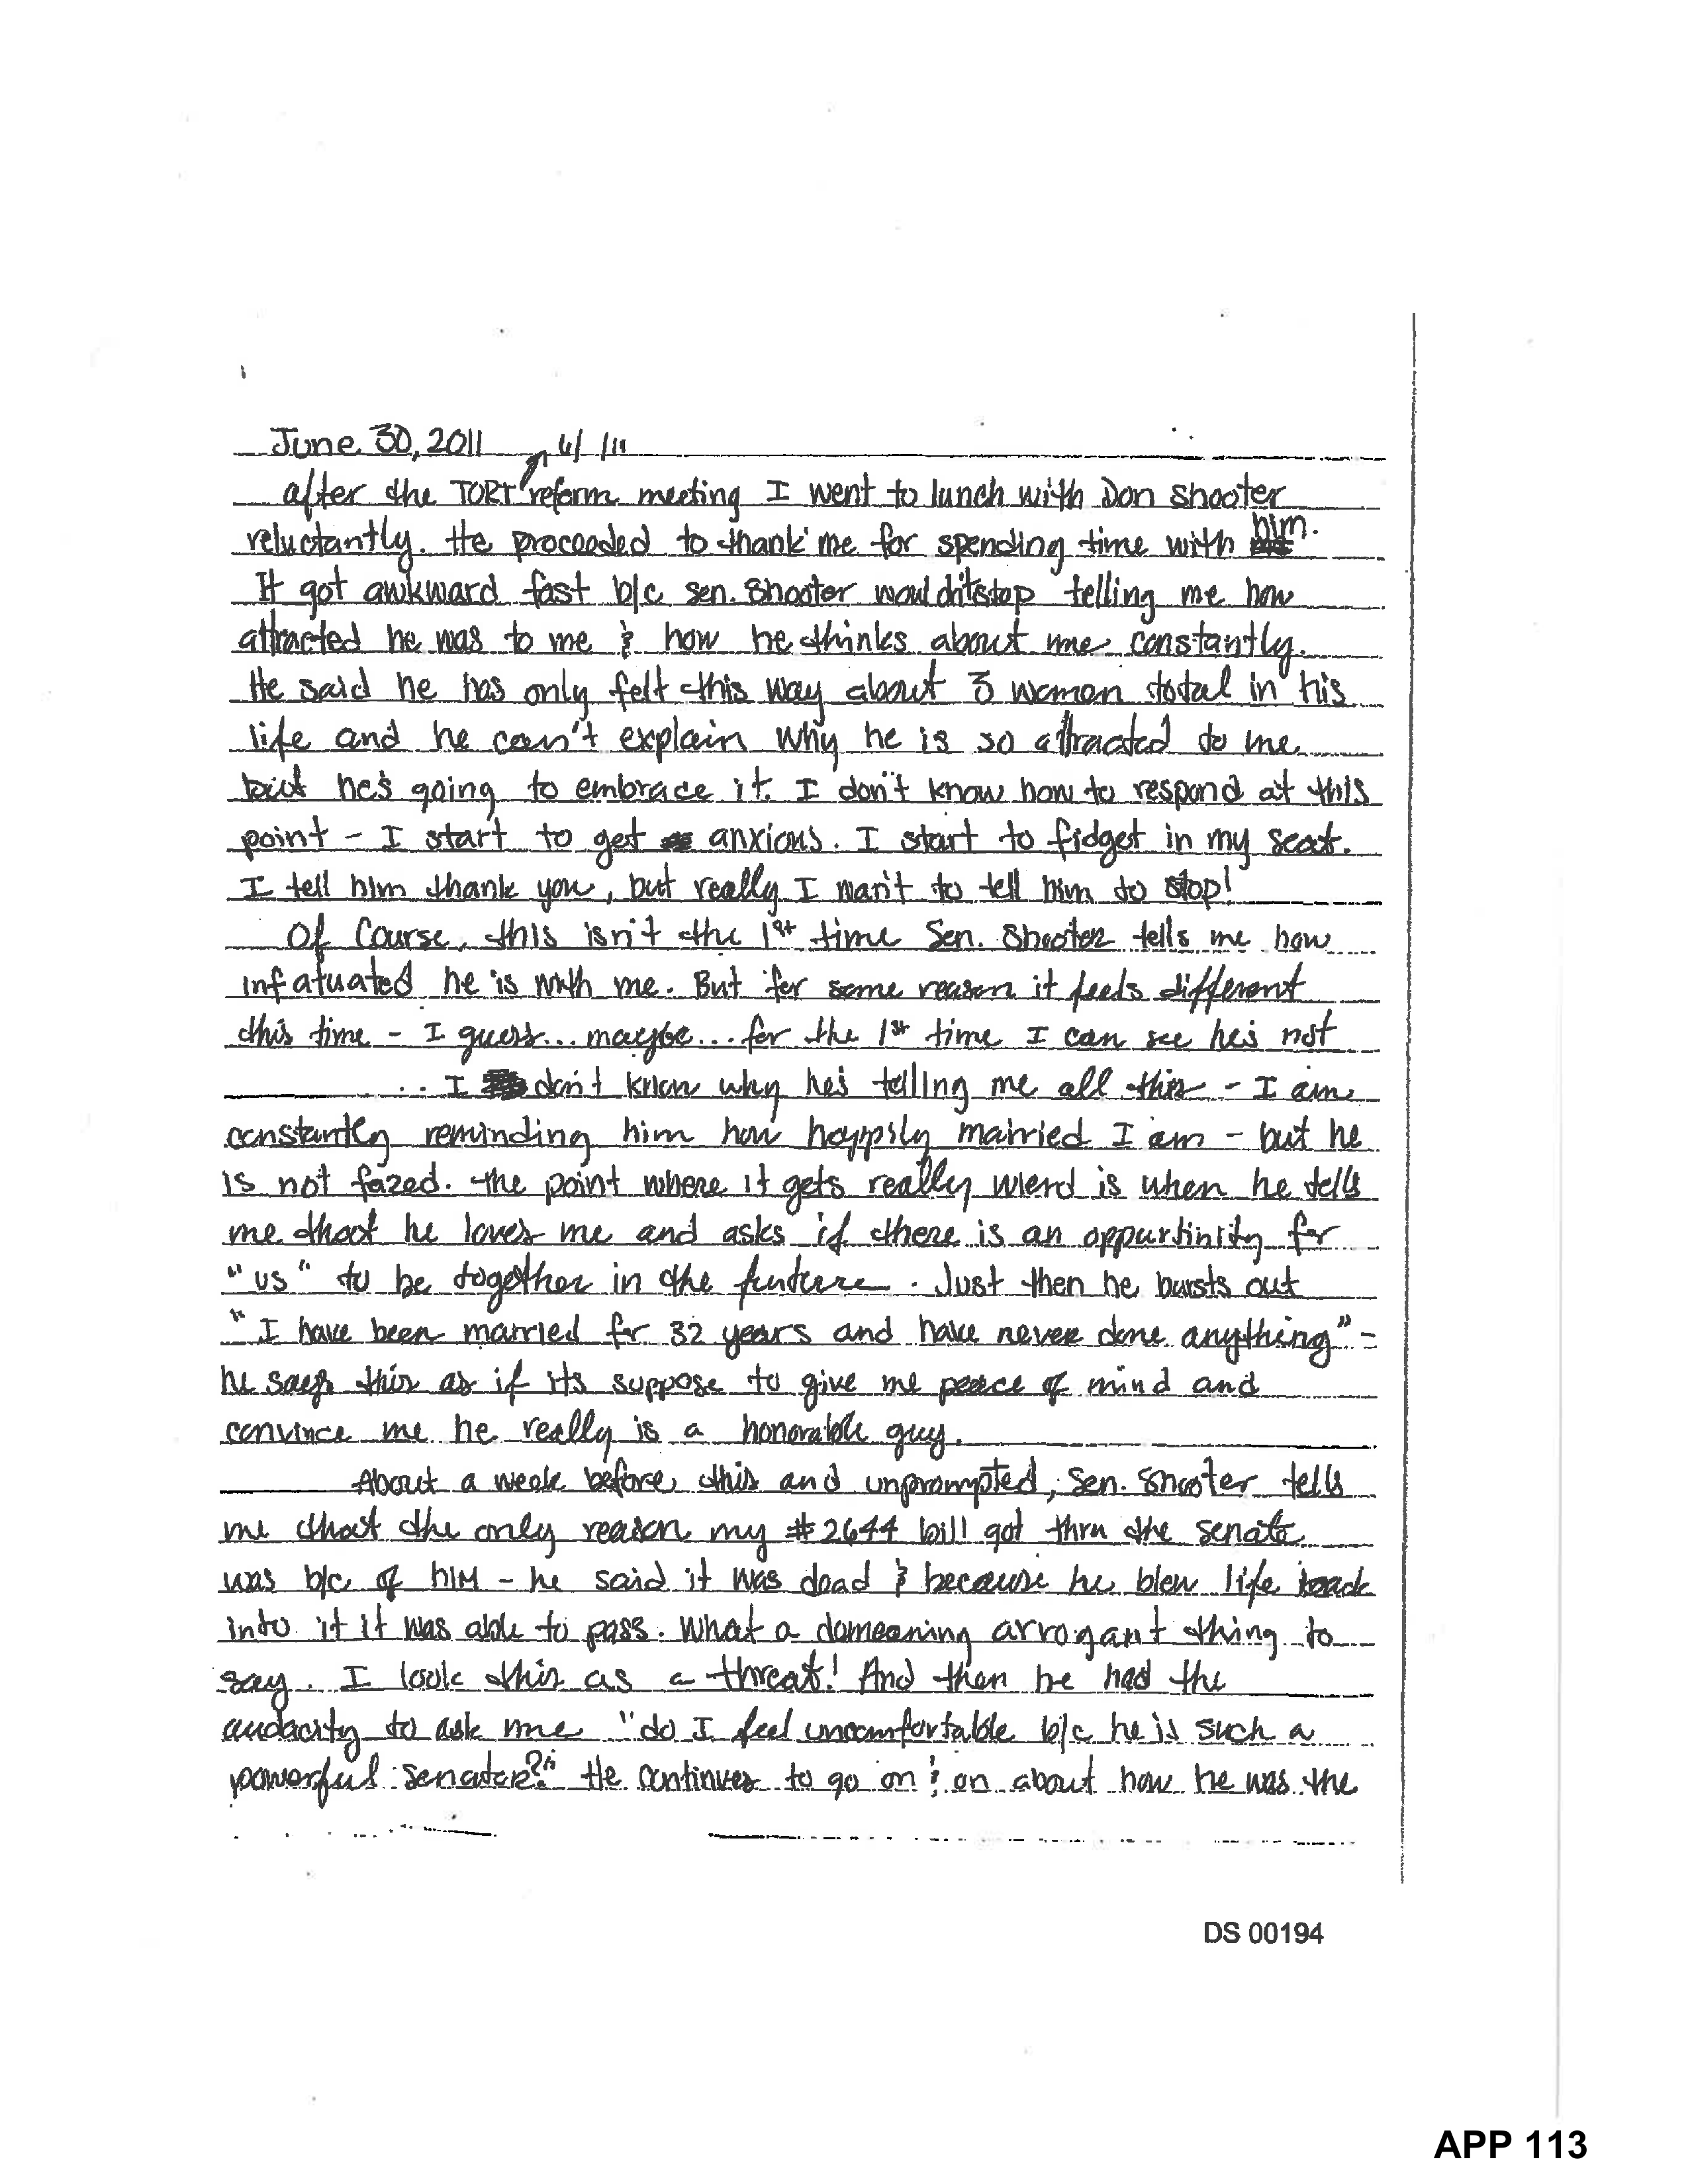 June 30, 2011
after the TORT reform meeting I went to lunch with Don Shooter
reluctantly. He proceeded to thank me for spending time with him.
It got awkward fast b/c Sen. Shooter wouldn't stop telling me how
attracted he was to me & how he thinks about me constantly.
He said he has only felt this way about 3 women total in his
life and he can't explain why he is so attracted to me
but he's going to embrace it. I don't know how to respond at this
point - I start to get anxious. I start to fidget in my seat.
I tell him thank you, but really I wan't to tell him to stop!
Of Course, this isn't the 1st time Sen. Shooter tells me how
infatuated he is with me. But for some reason it feels different
this time - I guess... maybe... for the 1st time I can see he's not
.. I don't know why he's telling me all this - I am
constantly reminding him how happily married I am - but he
is not fazed. The point where it gets really wierd is when he tells
me that he loves me and asks if there is an oppurtinity for
"us" to be together in the future. Just then he bursts out
"I have been married for 32 years and have never done anything" -
he says this as if its suppose to give me peace of mind and
convince me he really is a honorable guy.
About a week before this and unprompted, Sen. Shooter tells
me that the only reason my #2644 bill got thru the senate
was b/c of HIM - he said it was dead & because he blew life back
into it it was able to pass. What a domeaning arrogant thing to
say. I took this as a threat! And then he had the
audacity to ask me "do I feel uncomfortable b/c he is such a
powerful senator?" He continues to go on & on about how he was the
DS 00194
APP 113